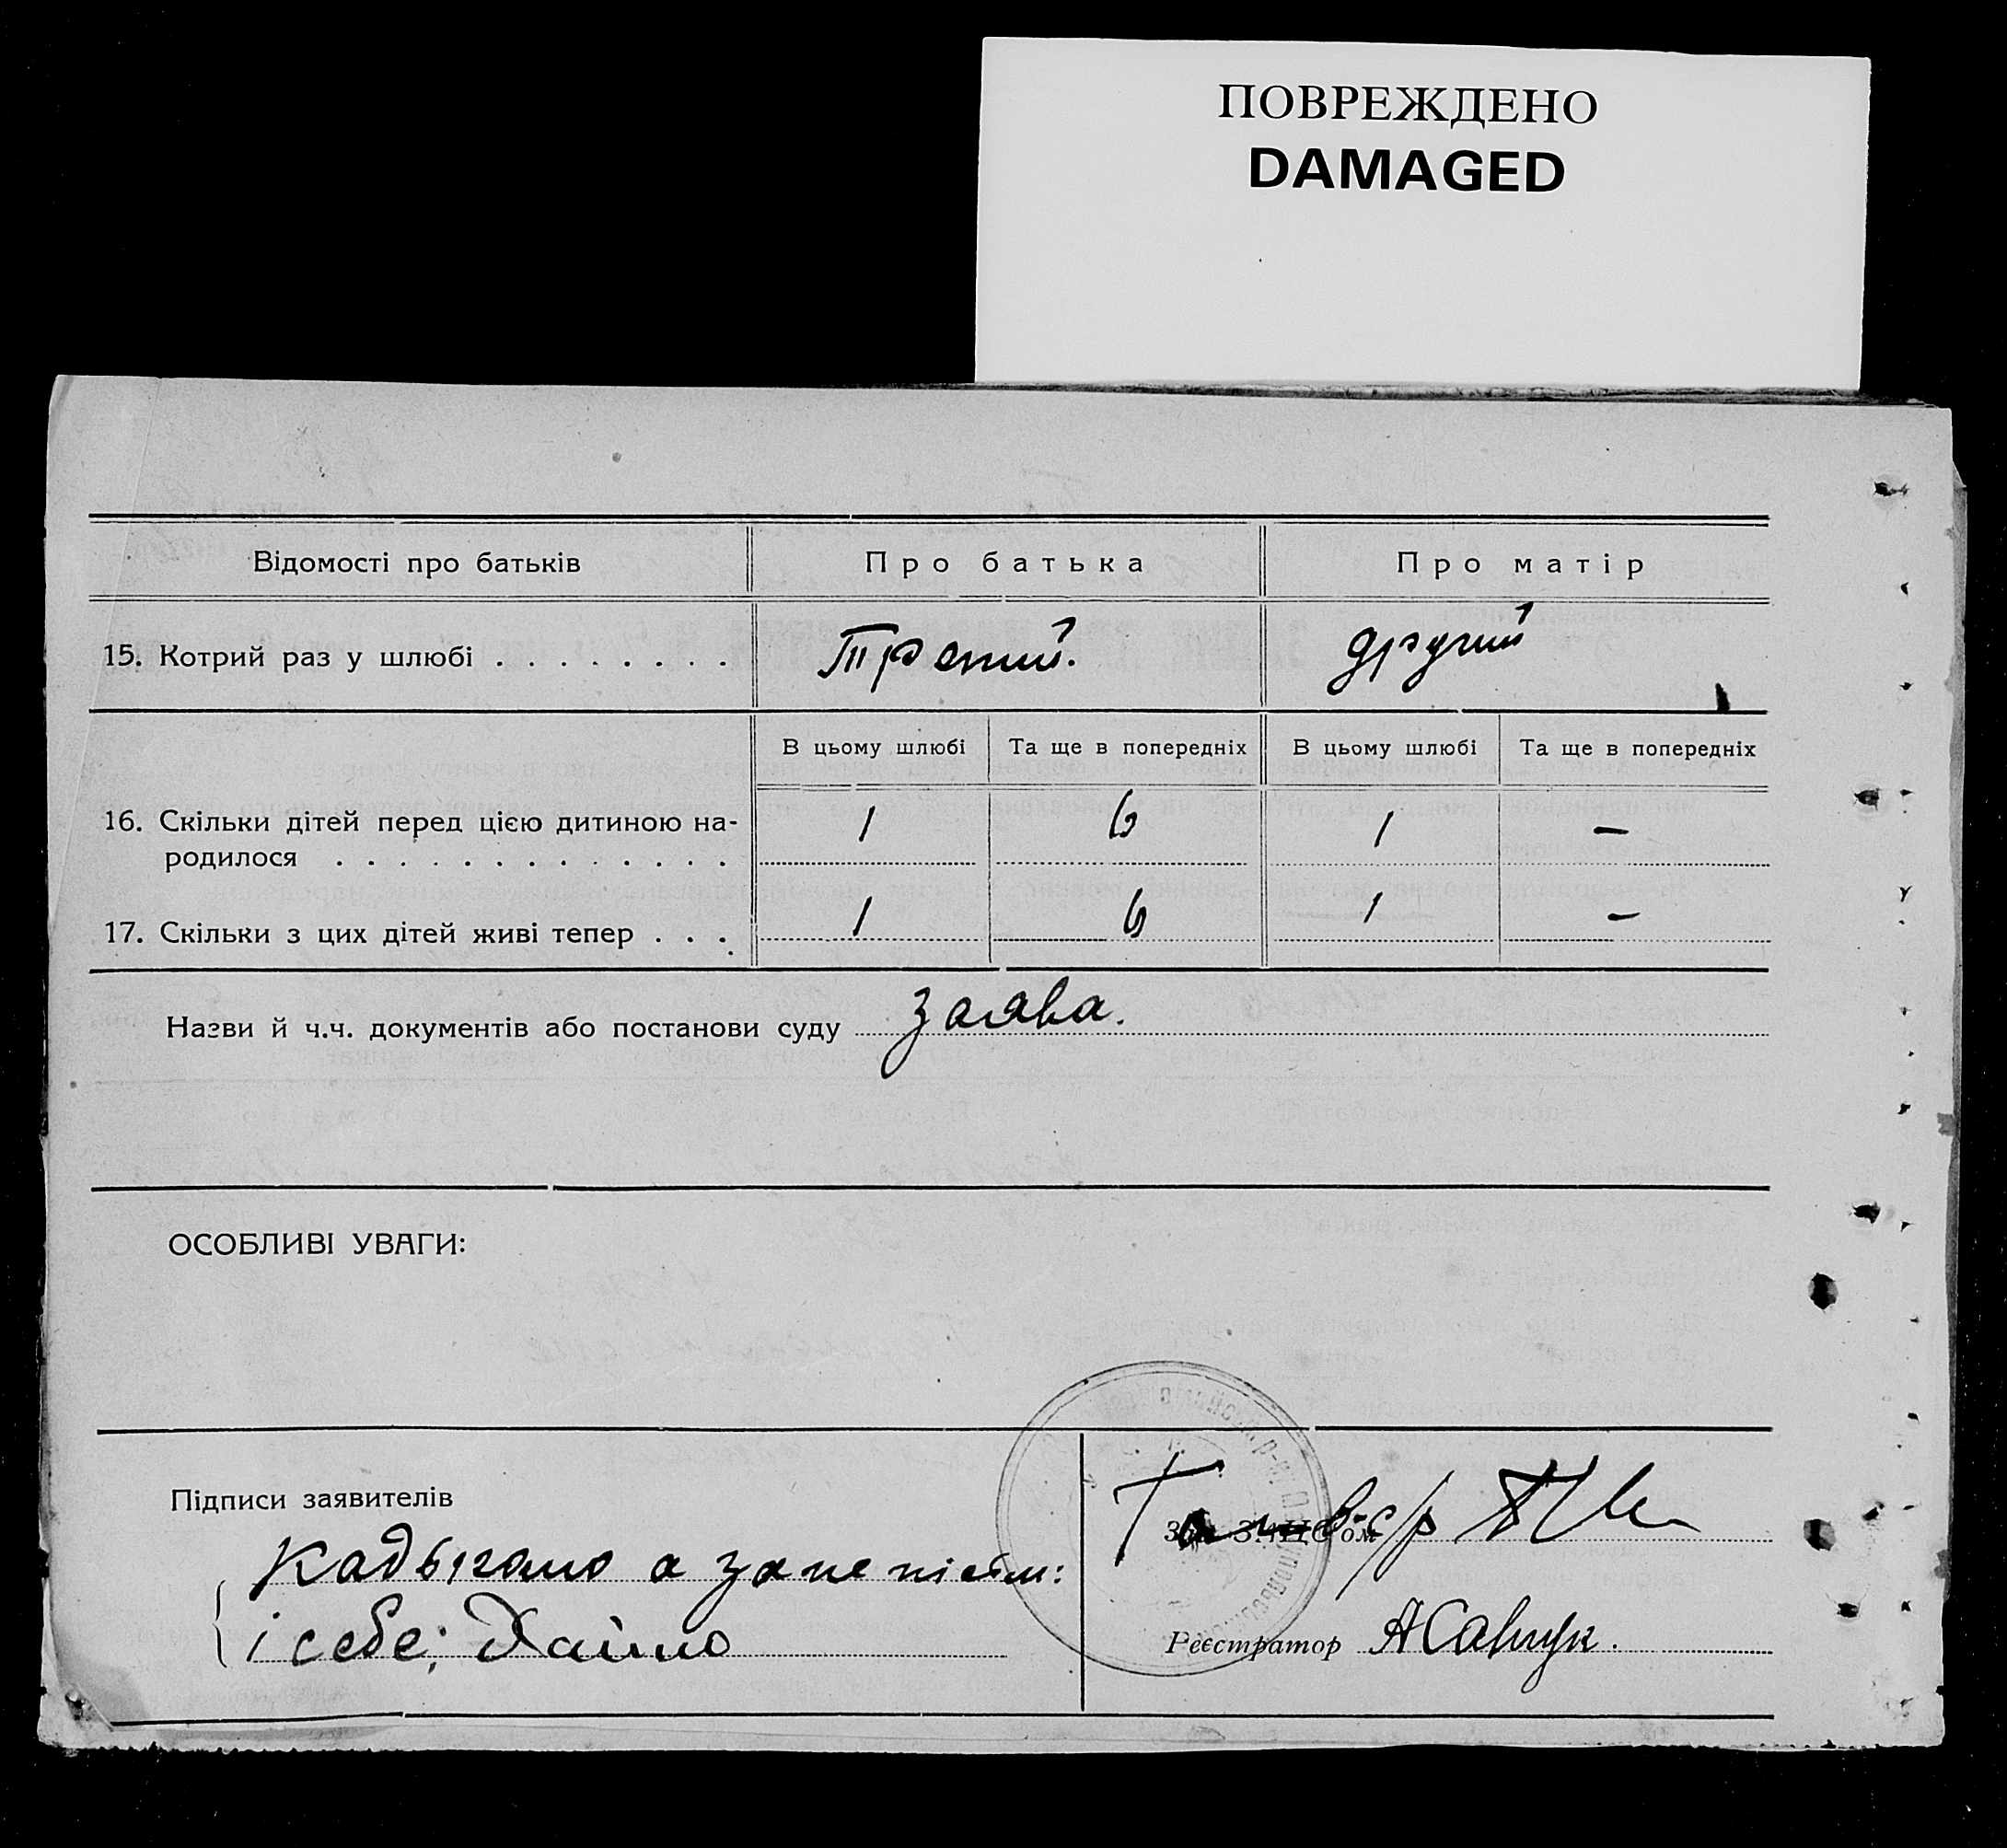 ПОВРЕЖДЕНО
DAMAGED
Відомості про батьків
Про батька
Про матір
15. Котрий раз у шлюбі . . . . . . . .
Третий.
другий
В цьому шлюбі
Та ще в попередніх
В цьому шлюбі
Та ще в попередніх
16. Скільки дітей перед цією дитиною на-
родилося . . . . . . . . . . . . . .
1
6
1
–
17. Скільки з цих дітей живі тепер . . .
1
6
1
–
Назви й ч.ч. документів або постанови суду
заява.
ОСОБЛИВІ УВАГИ:
Підписи заявителів
і себе;
Реєстратор
АСавчук.